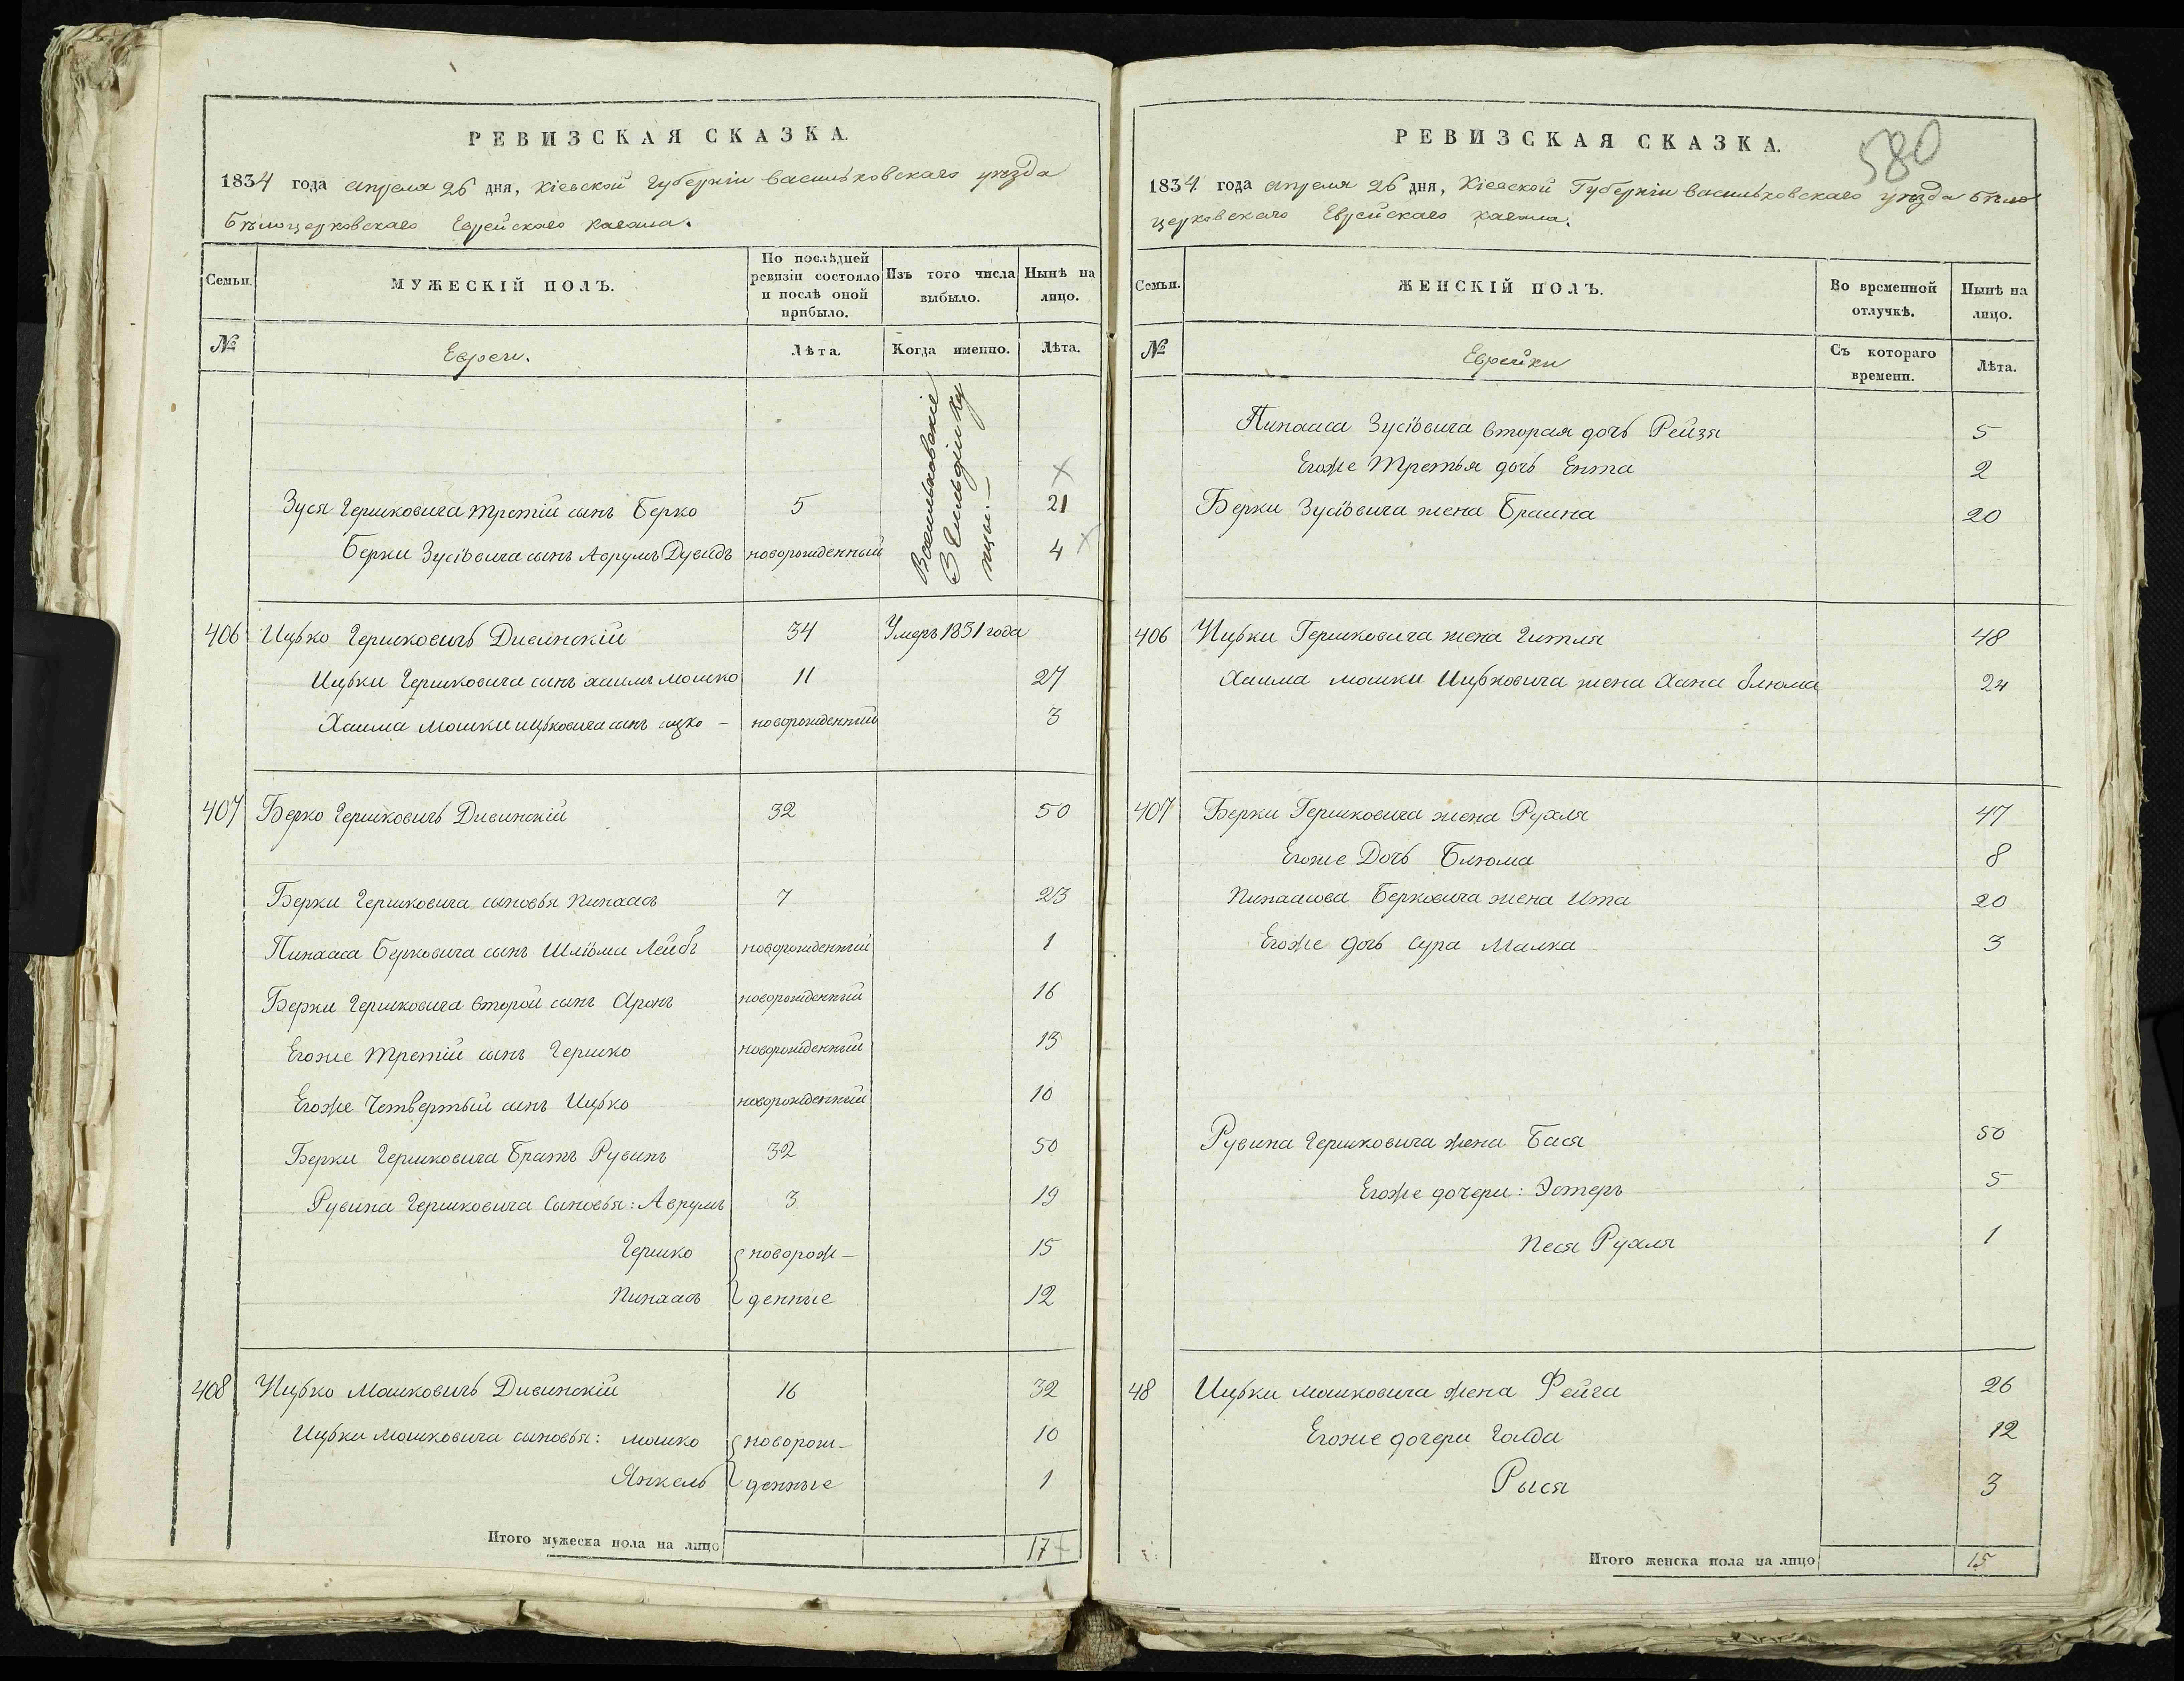 РЕВИЗСКАЯ СКАЗКА.
1834 года апреля 26 дня, Кіевской Губерніи Васильковскаго уѣзда
Бѣлоцерковскаго Еврейскаго Кагала.
Семьи.
МУЖЕСКІЙ ПОЛЪ.
По послѣдней ревизіи состояло и послѣ оной прибыло.
Изъ того числа выбыло.
Нынѣ на лицо.
№
Евреи.
Лѣта.
Когда именно.
Лѣта.
Васильковскіе
3 Гильдіи ку
пцы.
Зуся Гершковича третій сынъ Берко 5 21
Берки Зусіовича сынъ Аврумъ Дувидъ новорожденный 4
406 Ицько Гершковичъ Дивинскій 34 Умеръ 1831 года
Ицьки Гершковича сынъ хаимъ мошко 11 27
Хаима мошки ицьковича сынъ ицко - новорожденный 3
407 Берко Гершковичъ Дивинскій 32 50
Берки Гершковича сыновья Пинхасъ 7 23
Пинхаса Берковича сынъ Шліома Лейбъ новорожденный 1
Берки Гершковича второй сынъ Аронъ новорожденный 16
Егоже третій сынъ Гершко новорожденный 13
Егоже Четвертый сынъ Ицько новорожденный 10
Берки Гершковича Братъ Рувинъ 32 50
Рувина Гершковича Сыновья: Аврумъ 3 19
Гершко новорож- 15
Пинхасъ денные 12
408 Ицько Мошковичъ Дивинскій 16 32
Ицьки мошковича сыновья: мошко новорож- 10
Янкель денные 1
Итого мужеска пола на лицо 17
580
РЕВИЗСКАЯ СКАЗКА.
1834 года апреля 26 дня, Кіевской Губерніи Васильковскаго уѣзда Бѣло
церковскаго Еврейскаго кагала.
Семьи.
ЖЕНСКІЙ ПОЛЪ.
Во временной отлучкѣ.
Нынѣ на лицо.
№
Еврейки
Съ котораго времени.
Лѣта.
Пинхаса Зусіовича вторая дочь Рейзя 5
Егоже Третья дочь Ента 2
Берки Зусіовича жена Браина 20
406 Ицьки Гершковича жена Гитля 48
Хаима мошки Ицьковича жена Хана блюма 24
407 Берки Гершковича жена Рухля 47
Егоже Дочь Блюма 8
Пинхасова Берковича жена Ита 20
Егоже дочь Сура Малка 3
Рувина Гершковича жена Бася 50
Егоже дочери: Эстеръ 5
Песя Рухля 1
48 Ицьки мошковича жена Фейга 26
Егоже дочери Голда 12
Рыся 3
Итого женска пола на лицо 15